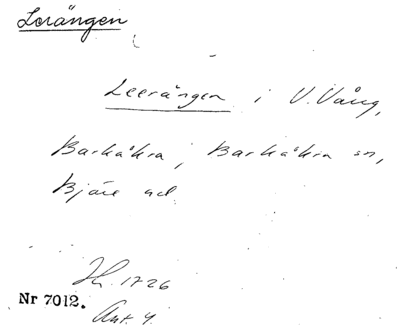 Lorängen
Leerängen i V. Vång,
Barkåkra, Barkåkra sn,
Bjäre hd.
Hr. 1726
Nr 7012.
Ant. 4.